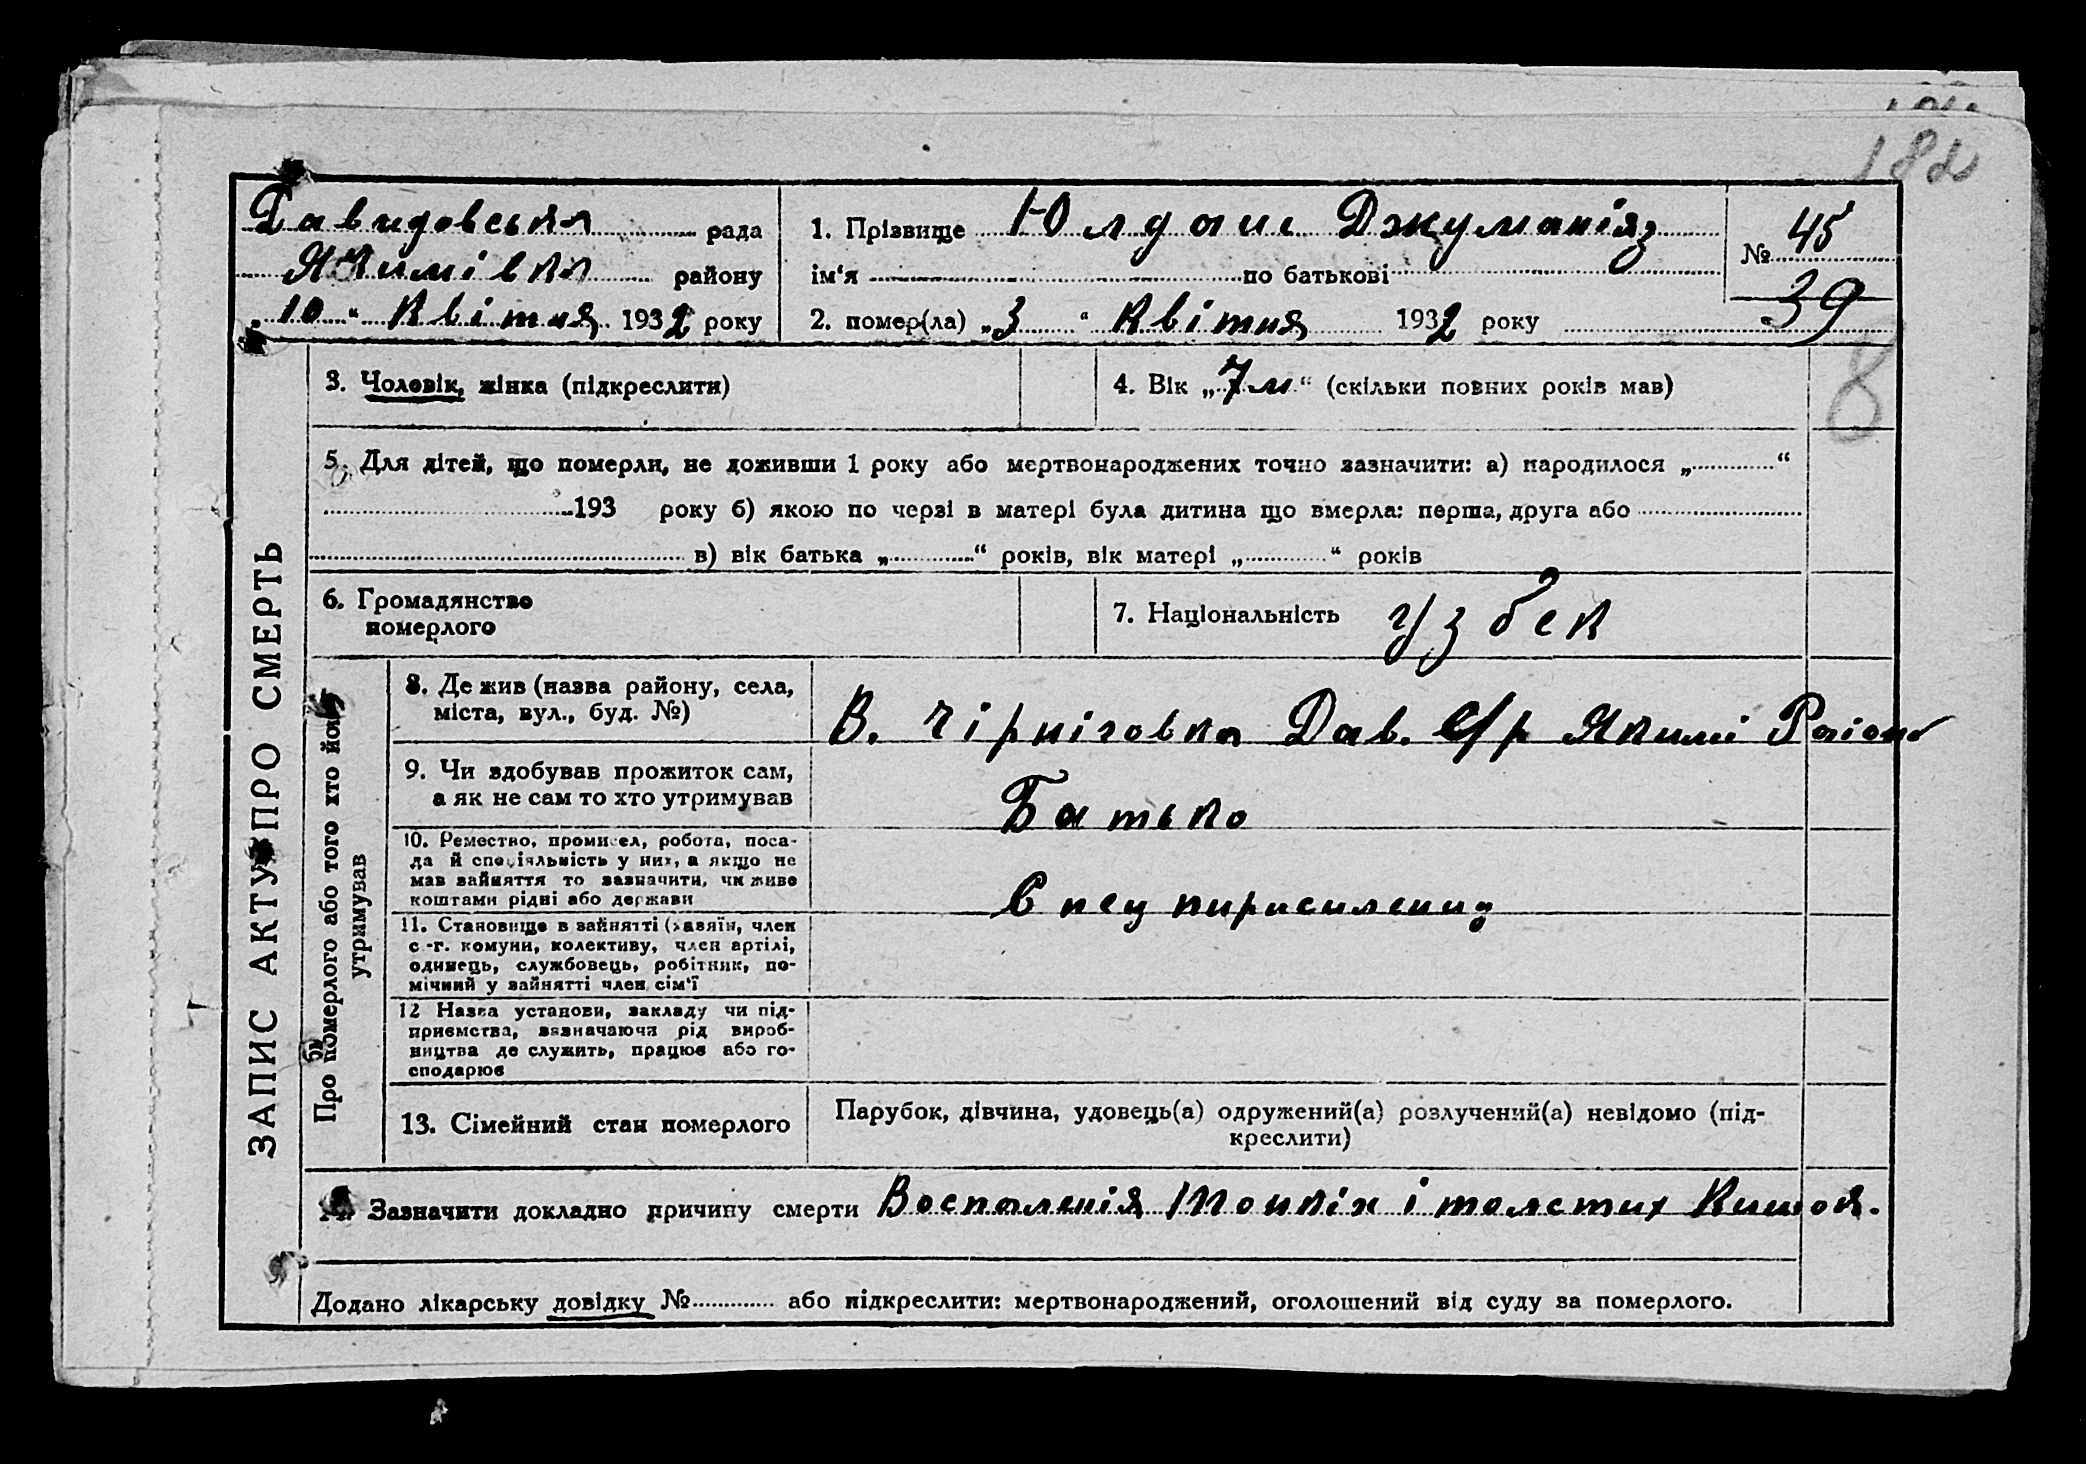 182
Давидовська рада
Якимівка району
„10“ Квітня 1932 року
1. Прізвище Юлдаш Джуманіяз
ім‘я по батькові
2. помер(ла) „3“ Квітня 1932 року
№ 45
39
8
3. Чоловік, жінка (підкреслити)
4. Вік „7м“ (скільки повних років мав)
5. Для дітей, що померли, не доживши 1 року або мертвонароджених точно зазначити: а) народилося „ “
193 року б) якою по черзі в матері була дитина що вмерла: перша, друга або
в) вік батька „ “ років, вік матері „ “ років
6. Громадянство
померлого
7. Національність узбек
ЗАПИС АКТУ ПРО СМЕРТЬ
Про померлого або того хто його
утримував
8. Де жив (назва району, села,
міста, вул., буд. №)
В. Чірніговка Дав. С/р Якимі Району
9. Чи здобував прожиток сам,
а як не сам то хто утримував
Батько
10. Ремество, промисел, робота, поса-
да й спеціяльність у них, а якщо не
мав зайняття то зазначити, чи живе
коштами рідні або держави
Спец пирисиленец
11. Становище в зайнятті (хазяїн, член
с.-г. комуни, колективу, член артілі,
одинець, службовець, робітник, по-
мічний у зайнятті член сім‘ї
12 Назва установи, закладу чи під-
приємства, зазначаючи рід вироб-
ництва де служить, працює або го-
сподарює
13. Сімейний стан померлого
Парубок, дівчина, удовець(а) одружений(а) розлучений(а) невідомо (під-
креслити)
Зазначити докладно причину смерти Воспаленія Тонкіх і толстих Кишок.
Додано лікарську довідку № або підкреслити: мертвонароджений, оголошений від суду за померлого.